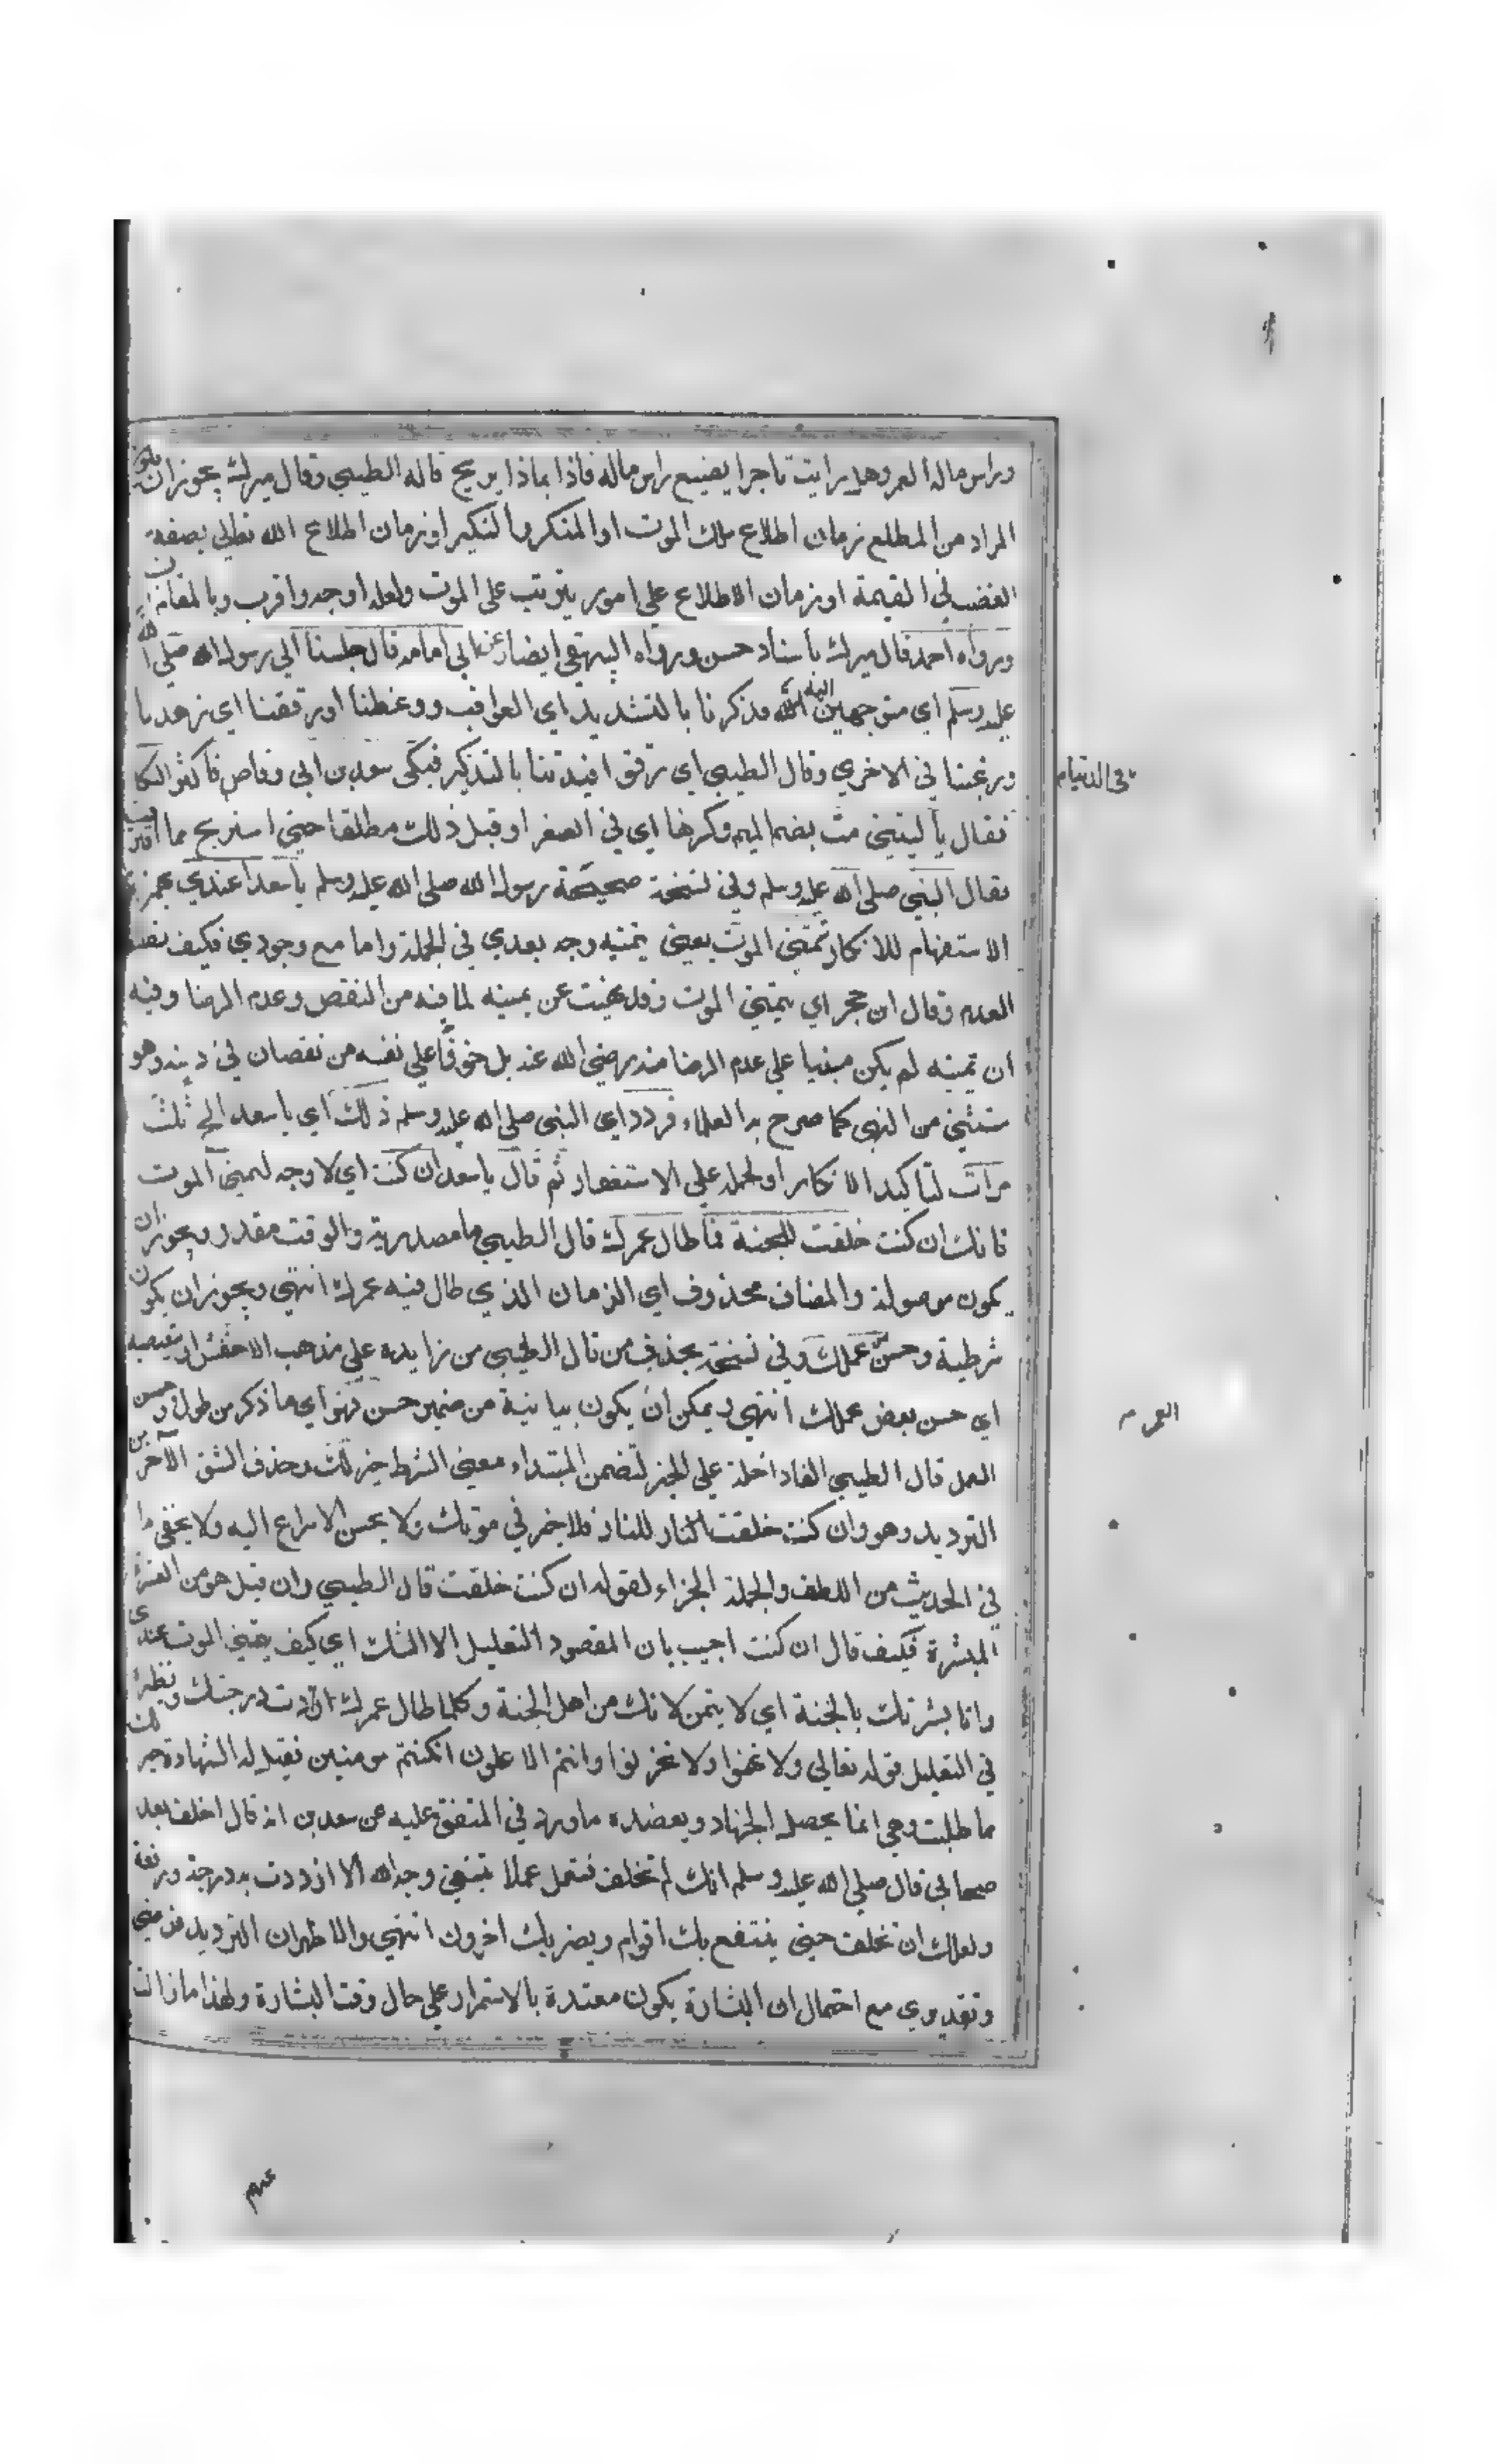 وراس ماله العمر وهل رايت تاجرا يضيع راس ماله فاذا بماذا يربح قاله الطيبي وقال ميرك يجوز ان يكون
المراد من المطلع زمان اطلاع ملك الموت او المنكر والنكير او زمان اطلاع الله تعالى بصفة
الغضب في القيمة او زمان الاطلاع على امور يترتب على الموت ولعله اوجه واقرب وبالمقام
ورواه احمد قال ميرك باسناد حسن ورواه البيهقي ايضا وعن ابي امامه قال جلسنا الي رسول الله صلى الله
عليه وسلم اي متوجهين اليه فذكرنا بالتشديد اي العواقب ووعظنا اورققنا اي زهدنا
في الدنيا
ورغبنا في الاخري وقال الطيبي اي رقق افئدتنا بالتذكير فبكى سعد بن ابي وقاص فاكثر البكا
فقال يا ليتني مت بضم الميم وكسرها اي في الصغر او قبل ذلك مطلقا حتى استريح مما اقترفت
فقال النبي صلى الله عليه وسلم وفي نسخة صحيحة رسول الله صلى الله عليه وسلم يا سعد اعندي بهمزة
الاستفهام للانكار تتمنى الموت يعني تمنيه وجه بعدي في الجملة واما مع وجودي فكيف
العدم وقال ابن حجر اي تتمنى الموت وقد نهيت عن تمنيه لما فيه من النقص وعدم الرضا وفيه
ان تمنيه لم يكن مبنيا على عدم الرضا منه رضي الله عنه بل خوفا على نفسه من نقصان في دينه وهو
مستثنى من النهي كما صرح به العلماء فردد اي النبي صلى الله عليه وسلم ذلك اي يا سعد الخ ثلث
مرات لتاكيد الانكار او لحمله على الاستغفار ثم قال يا سعد ان كنت اي لا وجه لتمني الموت
فانك ان كنت خلقت للجنة فما طال عمرك قال الطيبي ما مصدرية والوقت مقدر ويجوز ان
يكون موصولة والمضاف محذوف اي الزمان الذي طال فيه عمرك انتهى ويجوز ان يكون
شرطية وحسن من عملك وفي نسخة بحذف من قال الطيبي من زايدة على مذهب الاخفش او تبعيضية
اي حسن بعض عملك انتهى ويمكن ان يكون بيانية من ضمير حسن فهو اي ما ذكر من طول وحسن
العمر
العمل قال الطيبي الفا داخلة على الخبر لتضمن المبتداء معنى الشرط خير لك وحذف الشق الآخر من
الترديد وهو وان كنت خلقت للنار فلا خير في موتك ولا يحسن الاسراع اليه ولا يخفى ما
في الحديث من اللطف والجملة الجزاء لقوله ان كنت خلقت قال الطيبي وان قيل هو من العشرة
المبشرة فكيف قال ان كنت اجيب بان المقصود التعليل لا الشك اي كيف يتمنى الموت عندي
وانا بشرتك بالجنة اي لا يتمن لانك من اهل الجنة وكلما طال عمرك ازدادت درجتك ونظيره
في التعليل قوله تعالى ولا تهنوا ولا تحزنوا وانتم الاعلون ان كنتم مومنين فقيل له الشهادة خير لك
مما طلبت وهي انما يحصل الجهاد ويعضده ما ورد في المتفق عليه عن سعد بن انه قال اخلف بعد
صحابي قال صلى الله عليه وسلم انك لم تخلف فتعمل عملا تبتغي وجه الله الا ازددت به درجة ورفعة
ولعلك ان تخلف حتى ينتفع بك اقوام ويضر بك اخرون انتهى والاظهر ان الترديد فرضي
وتقديري مع احتمال ان البشارة يكون مقيدة بالاستمرار على حال وقت البشارة ولهذا ما زالت